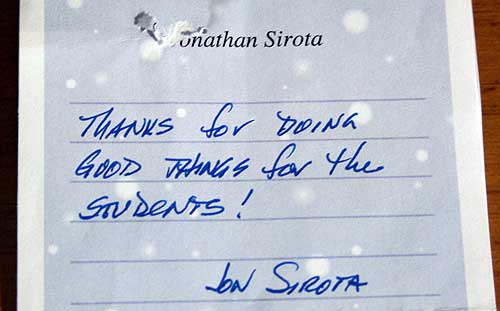 Jonathan Sirota
THANKS for DOING
GOOD THINGS for the
STUDENTS!
JON SIROTA